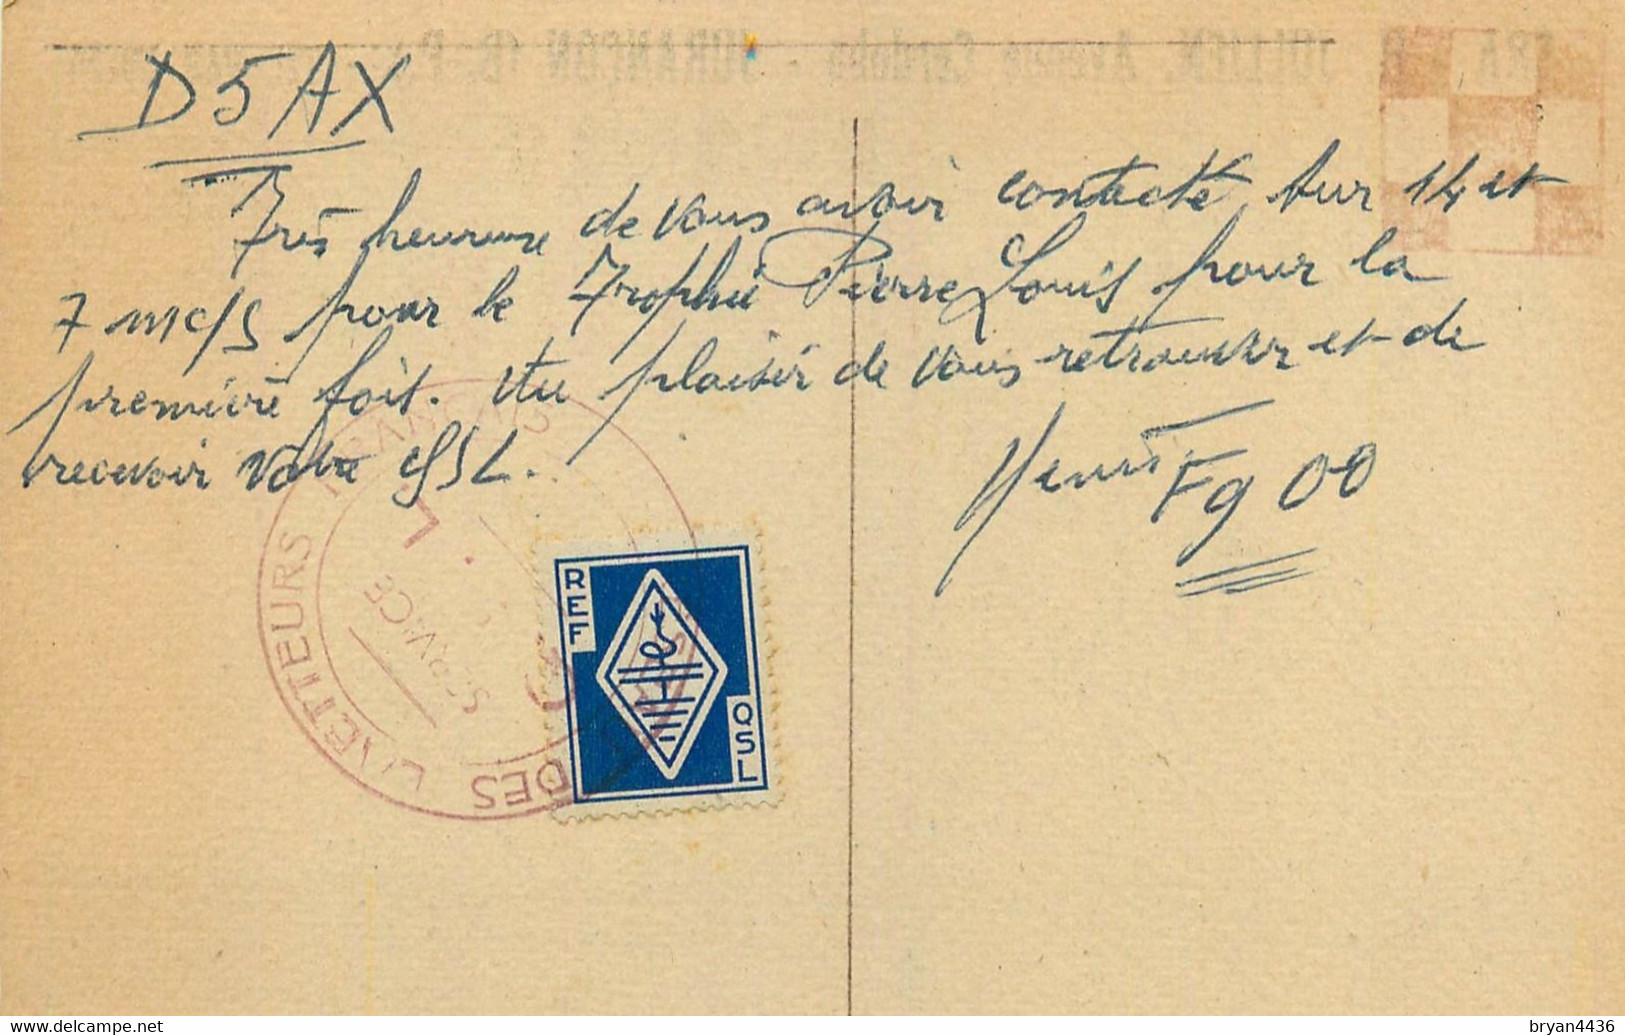 D5AX
Très heureuse de vous avoir contacté sur 14 et
7 mc/s pour le Trophée Pierre Louis pour la
première fois. Au plaisir de vous retrouver et de
recevoir votre QSL.
Henri F9OO
REF
QSL
DES EMETTEURS FRANÇAIS
SERVICE
bryan4436